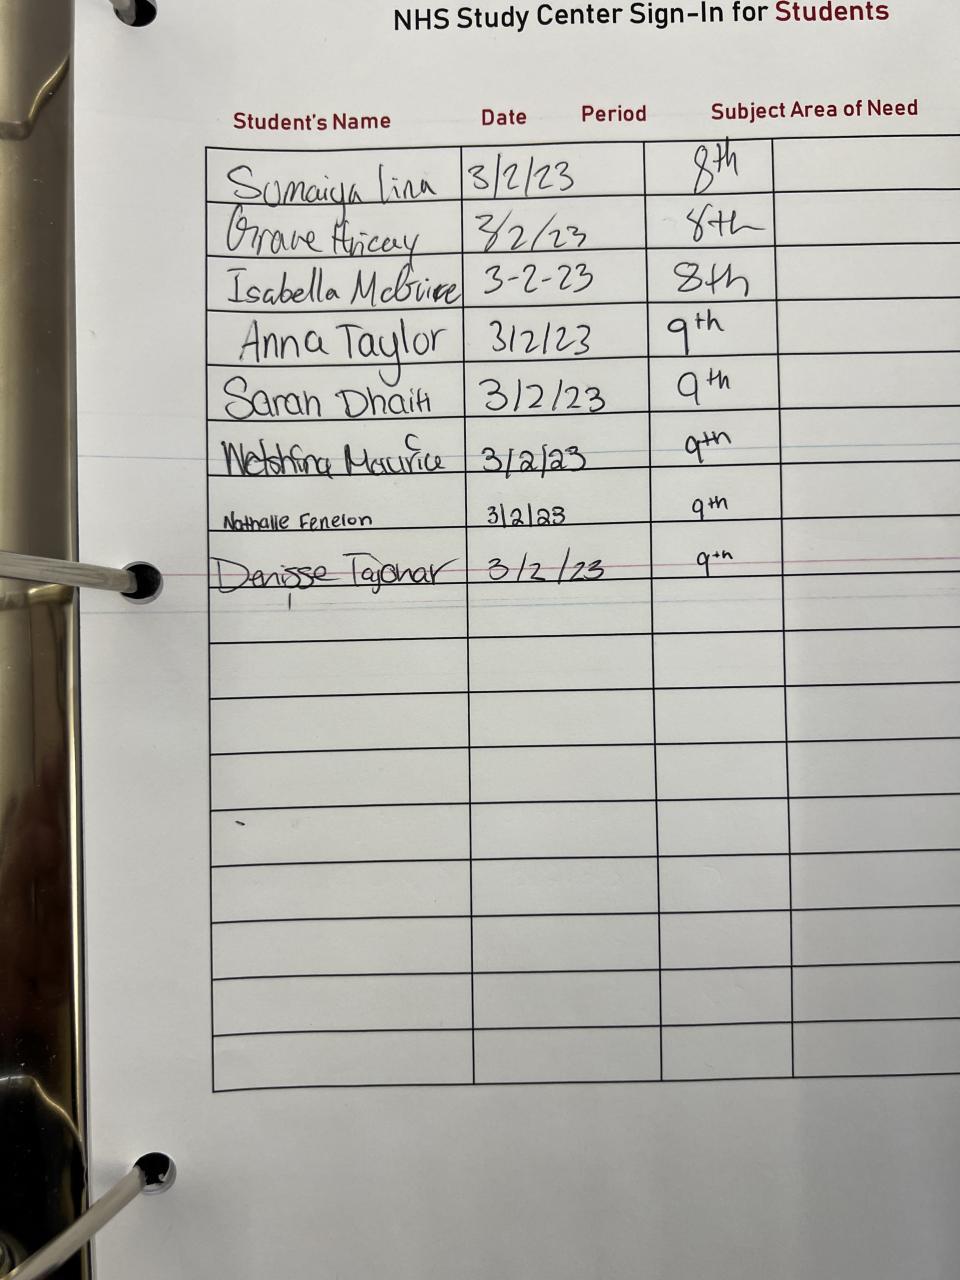 NHS Study Center Sign-In for Students
Student's Name Date Period Subject Area of Need
Sumaiya Lira 3/2/23 8th
3/2/23 8th
Isabella McGuire 3-2-23 8th
Anna Taylor 3/2/23 9th
Sarah Dhaiti 3/2/23 9th
Maurice 3/2/23 9th
Nathalie Fenelon 3/2/23 9th
Denisse Tajonar 3/2/23 9th